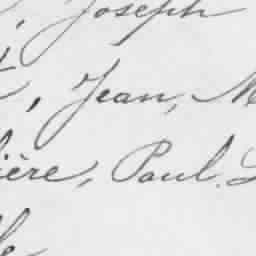 , Joseph
, Jean, M
ière, Paul. L